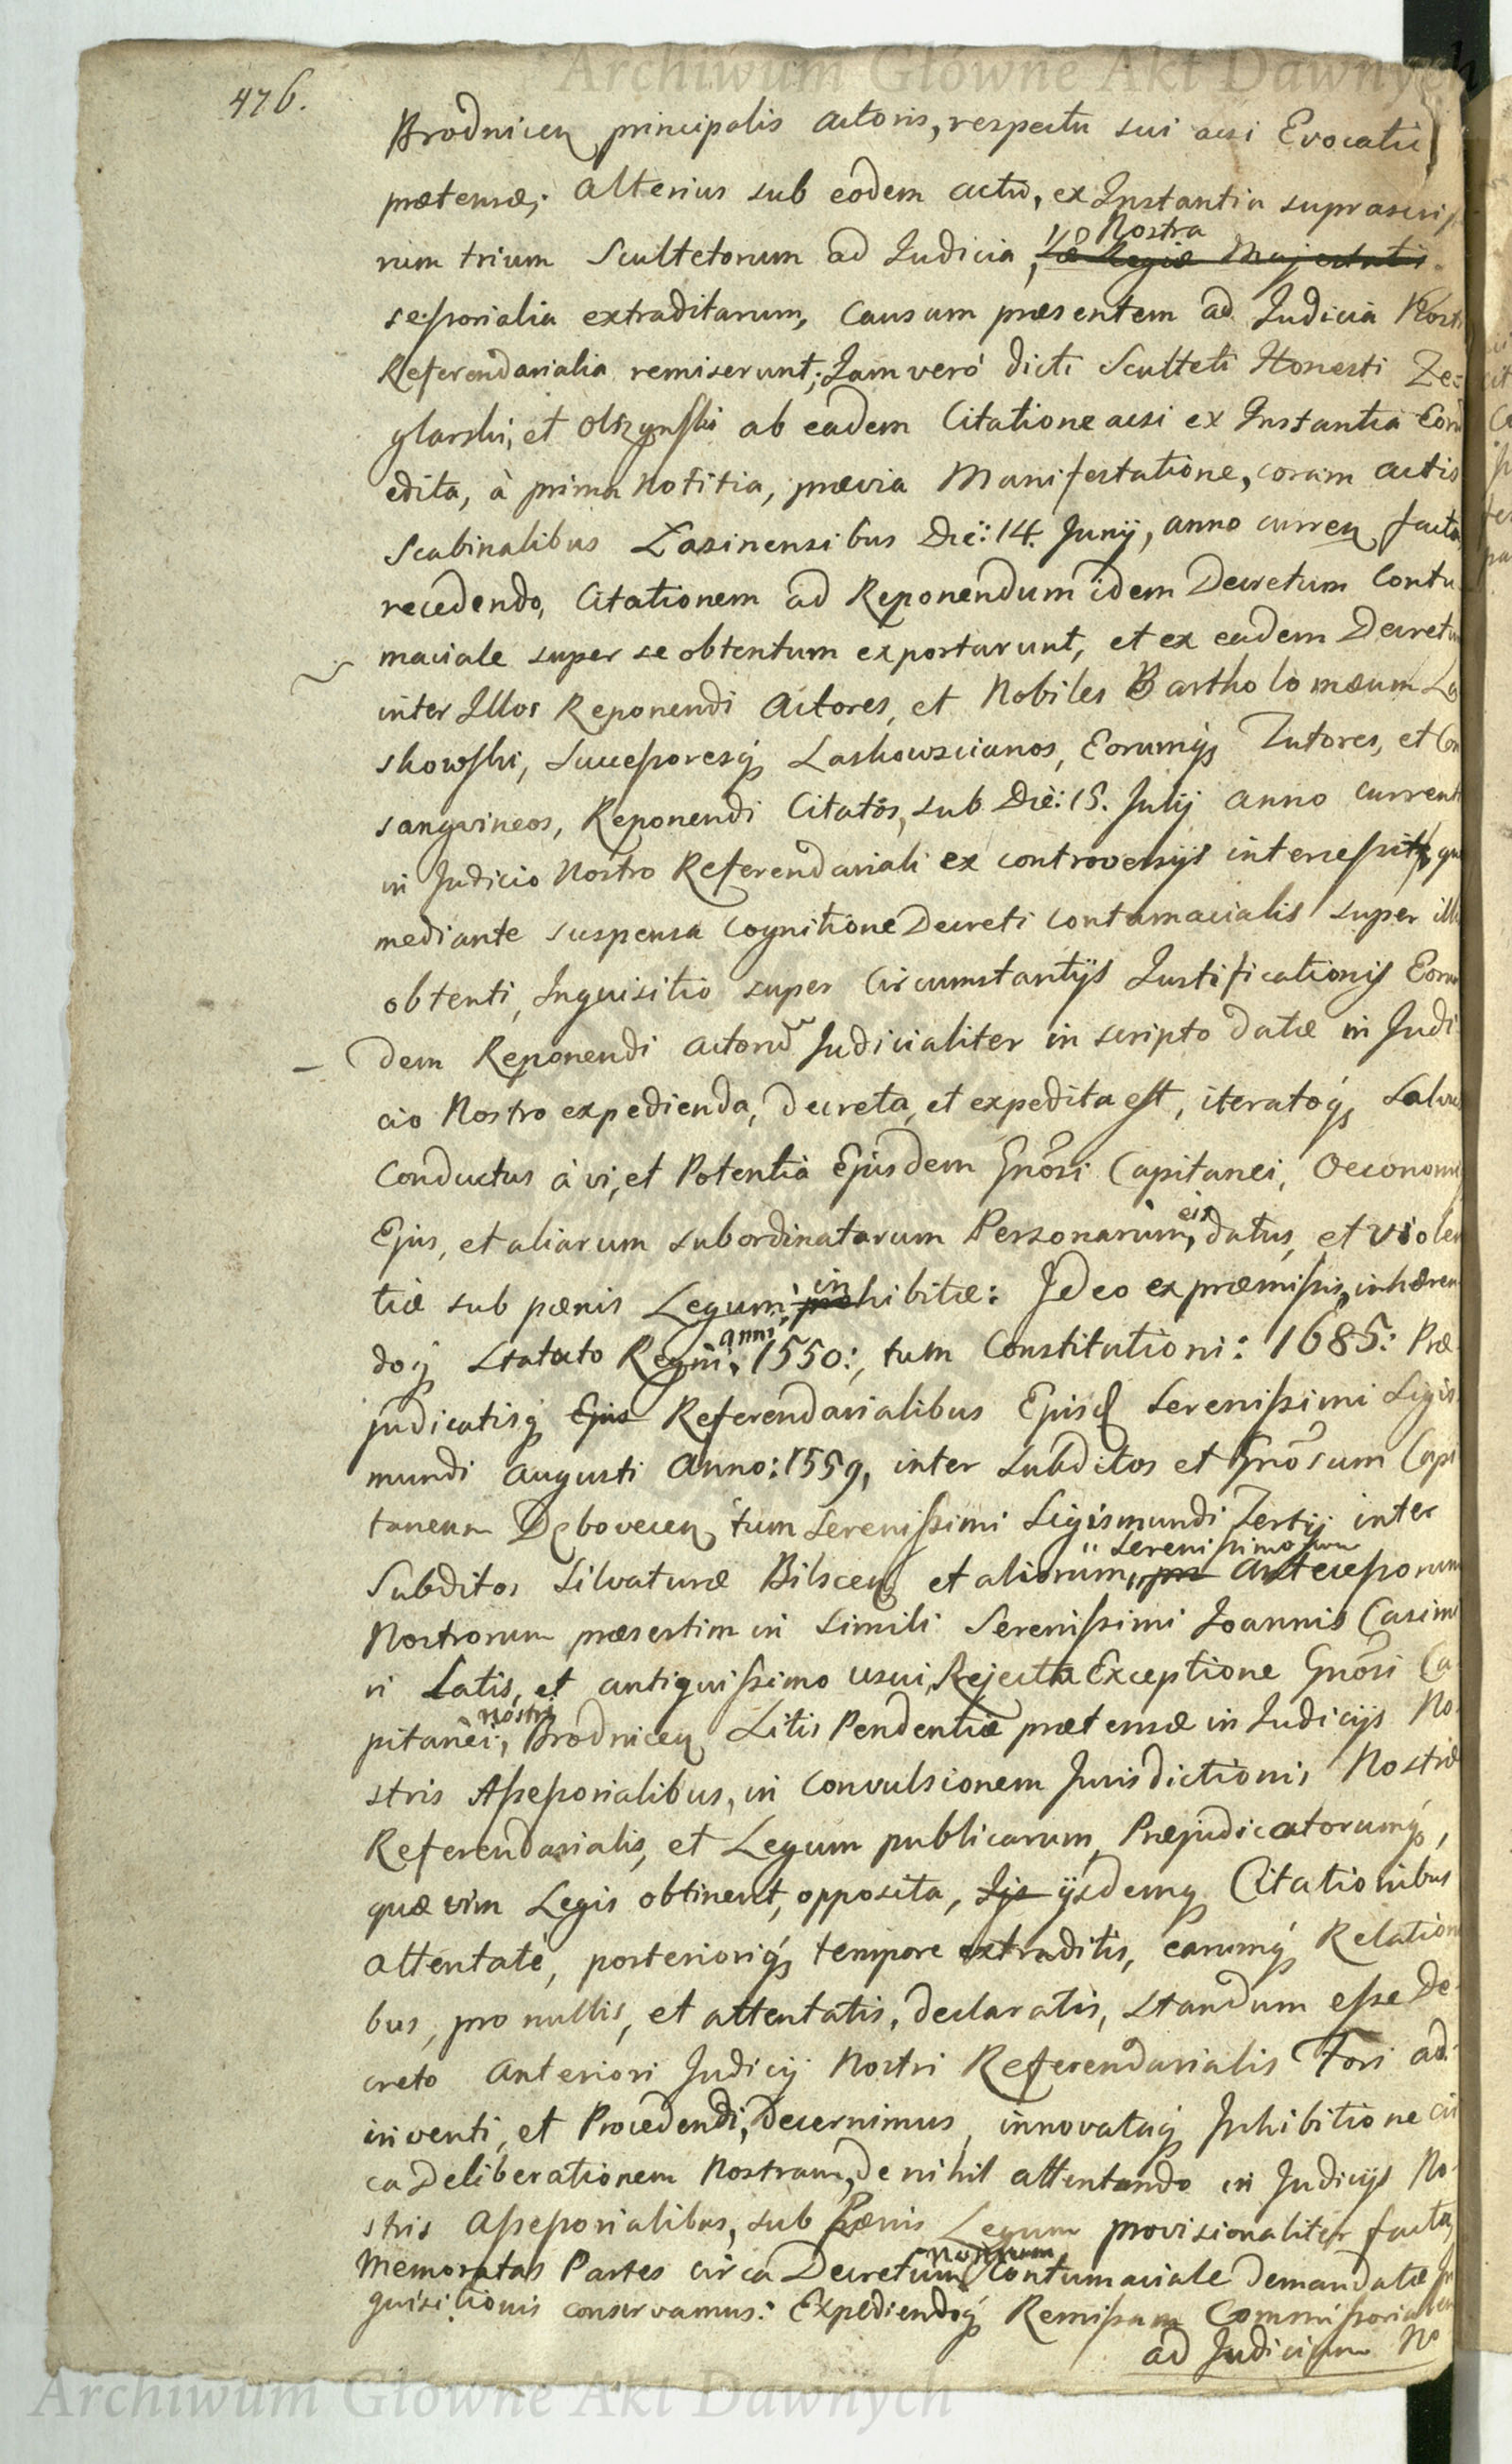 Archiwum Główne Akt Dawnych
476.
Brodnicen principalis actoris, respectu sui acsi Evocatii
prætensæ; alterius sub eodem actu, ex Instantia suprascrip
rum trium Scultetorum ad Judicia, Nostra Sæ Regiæ Majestatis
sessorialia extraditarum, Causam præsentem ad Judicia Nost
Referendarialia remiserunt; Jam veró dicti Sculteti Honesti Ze=
glarski, et Olszynski ab eadem Citatione acsi ex Instantia Eor
edita, à prima notitia, prævia Manifestatione, coram actis
Scabinalibus Łasinensibus Die: 14. Junij, anno curren facta,
recedendo, Citationem ad Reponendum idem Decretum Contu
maciale super se obtentum exportarunt, et ex eadem Decretu
inter Illos Reponendi Actores, et Nobiles Bartholomæum La
skowski, Successoresq Laskowscianos, Eorumq Tutores, et Con
sangvineos, Reponendi Citatos, sub Die: 15. Julij anno current
in Judicio Nostro Referendariali ex controversijs intercessit, qu
mediante suspensa Cognitione Decreti Contumacialis super ill
obtenti, Inquisitio super Circumstantijs Justificationis Eoru
dem Reponendi actorū Judicialiter in scripto datæ in Judi
cio Nostro expedienda, decreta, et expedita est, iteratoq Salvus
Conductus à vi, et Potentia Ejusdem Gnōsi Capitanei, Oeconom
Ejus, et aliarum subordinatarum Personarum, eis datus, et violen
tiæ sub pænis Legum, in prohibitæ: Ideo ex præmissis, inhæren
doq Statuto Regni, anni 1550:, tum Constitutioni: 1685: Præ
judicatisq Ejus Referendarialibus Ejusd Serenissimi Sigis
mundi Augusti Anno: 1559, inter Subditos et Gnōsum Capi
taneum Dębovecen tum Serenissimi Sigismundi Tertij inter
Subditos Silvaturæ Bilscen et aliorum, Serenissimorum Antecessorum
Nostrorum præsertim in Simili Serenissimi Joannis Casimi
ri Latis, et antiquissimo usui, Rejecta Exceptione Gnōsi Ca
pitanei, nostri Brodnicen Litis Pendentiæ prætensæ in Judicijs No
stris Assessorialibus, in Convulsionem Jurisdictionis Nostræ
Referendarialis, et Legum publicarum, Præjudicatorumq,
quæ vim Legis obtinent, opposita, Ijs ijsdemq Citationibus
attentatè, posterioriq tempore extraditis, earumq Relation
bus, pro nullis, et attentatis, declaratis, standum esse De
creto Anteriori Judicij Nostri Referendarialis Fori ad
inventi, et Procedendi, Decernimus, innovataq Inhibitione cir
ca Deliberationem Nostram, de nihil attentando in Judicijs No
stris Assessorialibus, sub Pænis Legum provisionaliter facta,
Memoratas Partes circa Decretum Nostrum Contumaciale demandatæ In
quisitionis conservamus: Expediendoq Remissam Commissorialem
ad Judicium No
Archiwum Główne Akt Dawnych